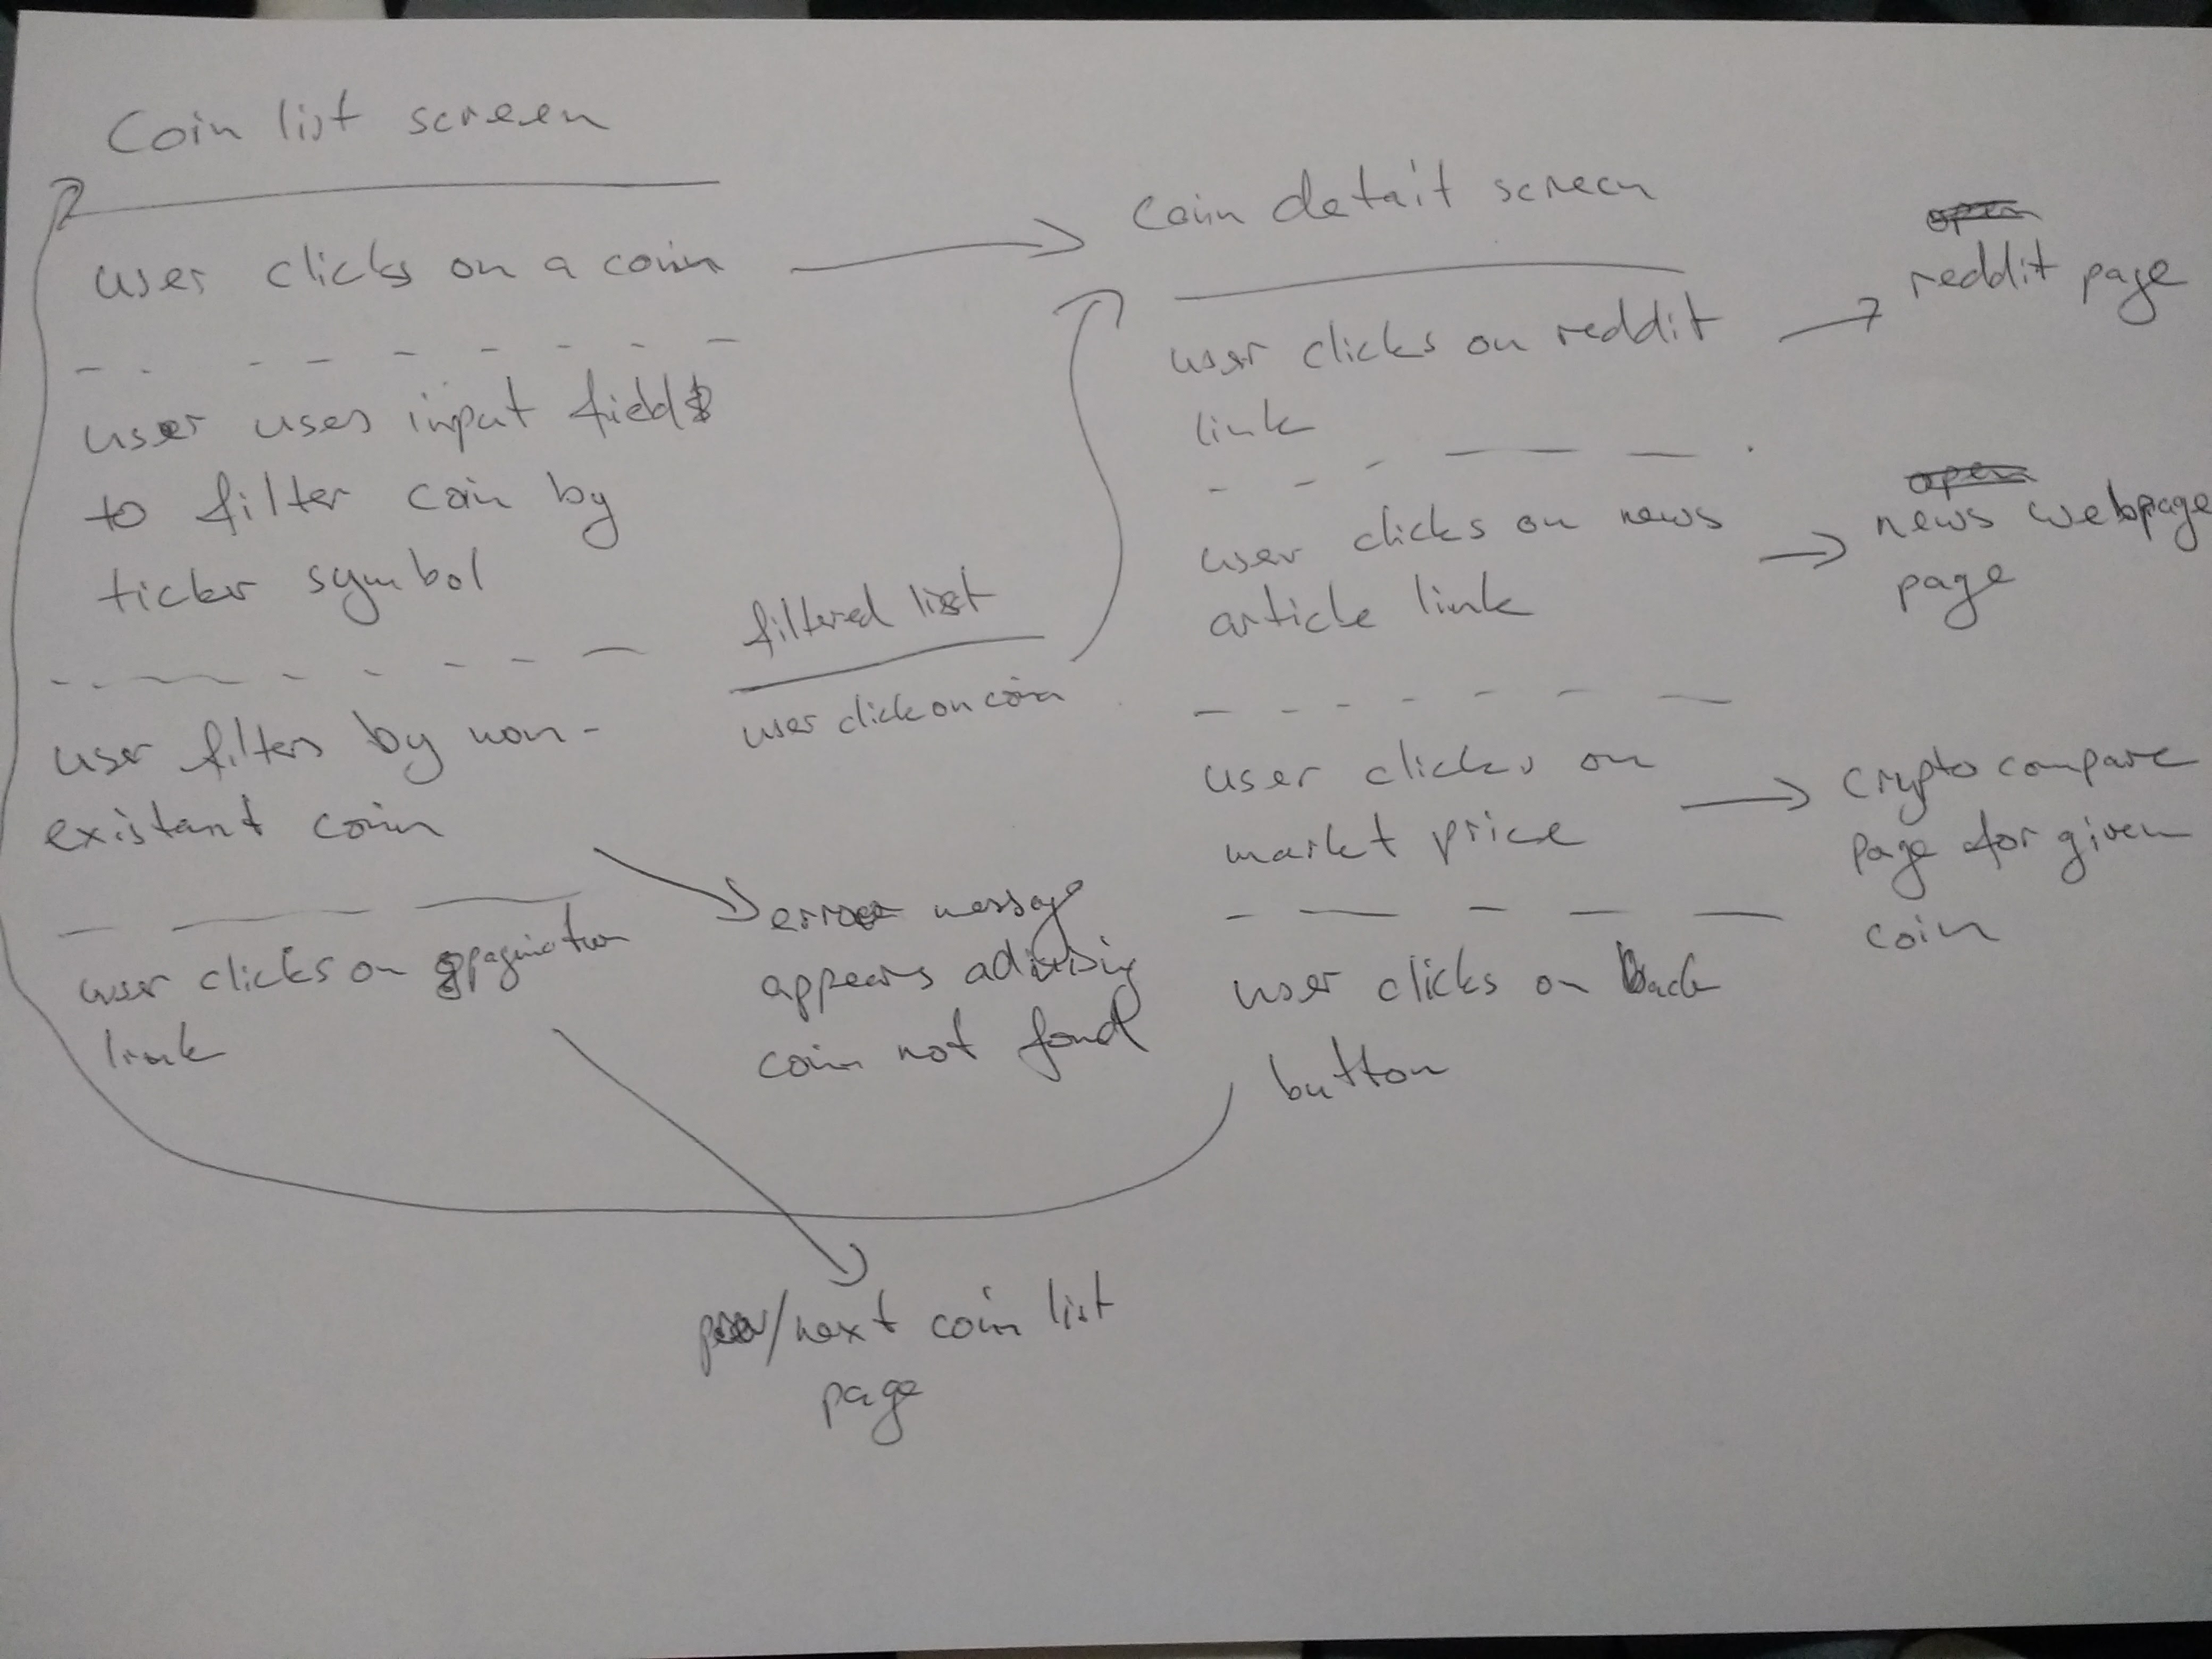 Coin list screen
user clicks on a coin
user uses input field
to filter coin by
ticker symbol
user filters by non-
existant coin
user clicks on pagination
link
filtered list
user click on coin
error message
appears advising
coin not fond
prev/next coin list
page
coin detait screen
user clicks on reddit
link
user clicks on news
article link
user clicks on
market price
user clicks on back
button
open
reddit page
open
news webpage
page
crypto compare
page for given
coin